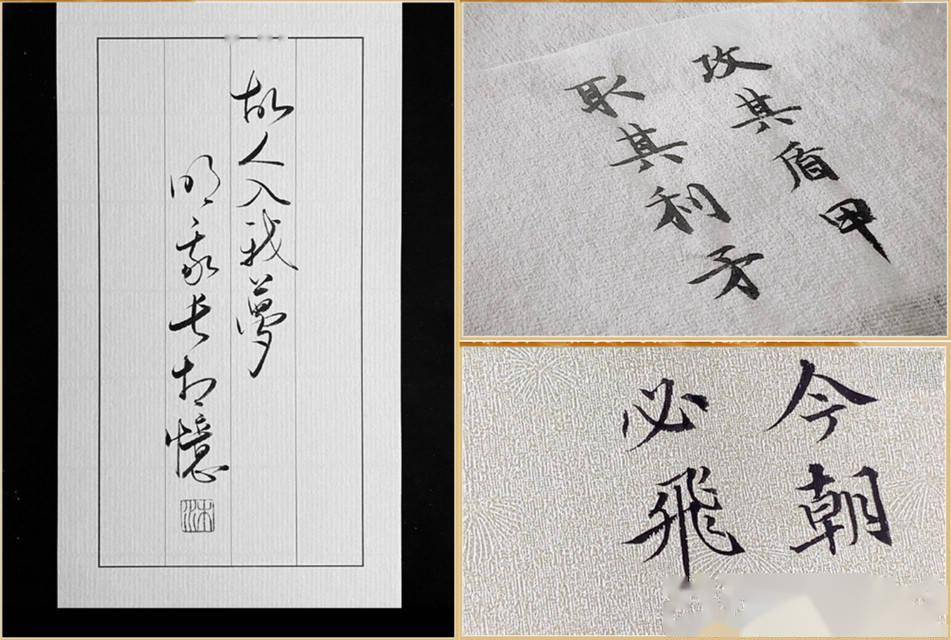 故人入我夢
明我長相憶
攻其盾甲
取其利矛
今朝
必飛